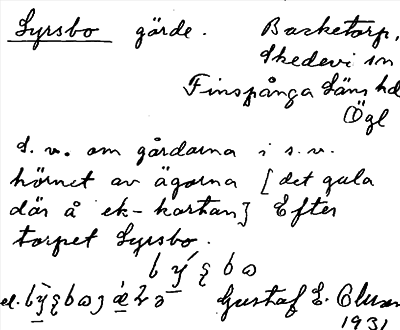 Lyrsbo gärde. Basketorp,
Skedevi sn
Finspånga Läns hd
Ögl
S. v. om gårdarna i s.v.
hörnet av ägorna [det gula
där å ek-kartan] Efter
torpet Lyrsbo.
el.
Gustaf E.
1931